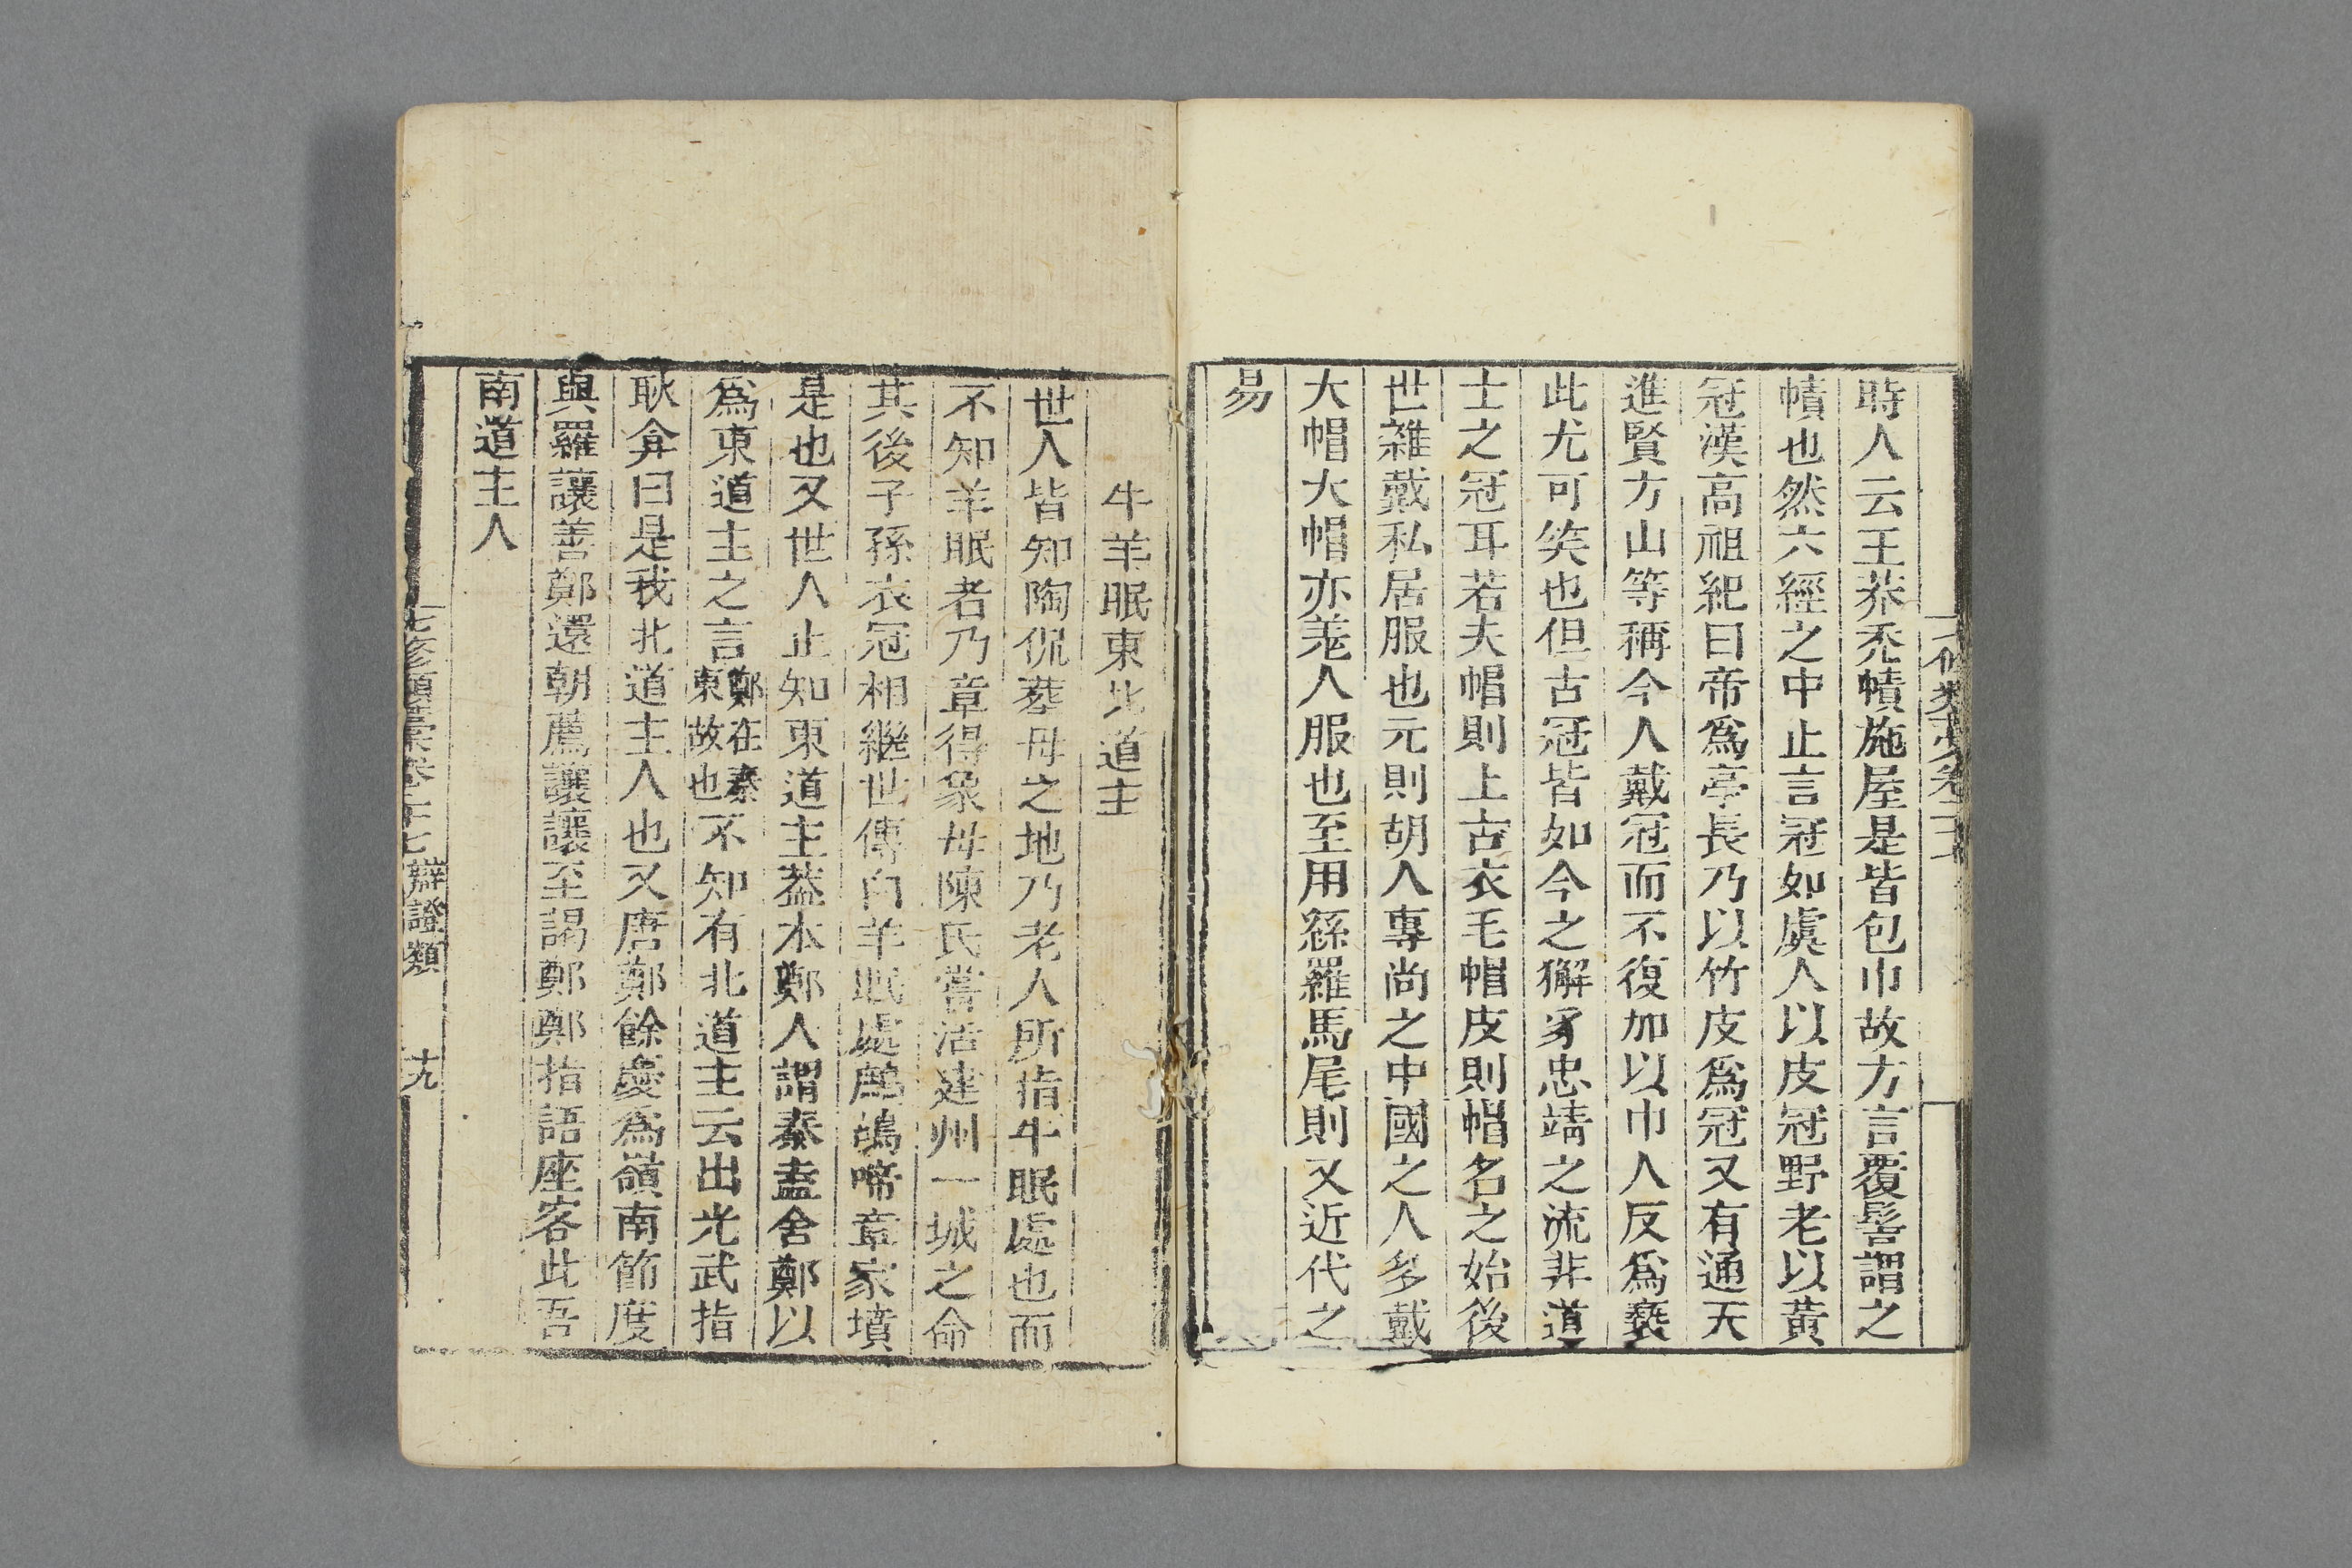 時人云王莽禿幘施屋是皆包巾故方言覆髻謂之
幘也然六經之中止言冠如虞人以皮冠野老以黃
冠漢高祖紀曰帝爲亭長乃以竹皮爲冠又有通天
進賢方山等稱今人戴冠而不復加以巾人反爲褻
此尤可笑也但古冠皆如今之獬豸忠靖之流非道
士之冠耳若夫帽則上古衣毛帽皮則帽名之始後
世雜戴私居服也元則胡人專尚之中國之人多戴
大帽大帽亦羌人服也至用絲羅馬尾則又近代之
易
牛羊眠東北道主
世人皆知陶侃葬母之地乃老人所指牛眠處也而
不知羊眠者乃章得象母陳氏嘗活建州一城之命
其後子孫衣冠相繼世傳白羊眠處鷓鴣啼章家墳
是也又世人止知東道主葢本鄭人謂秦盍舍鄭以
爲東道主之言鄭在秦東故也不知有北道主云出光武指
耿弇曰是我北道主人也又唐鄭餘慶爲嶺南節度
與羅讓善鄭還朝薦讓讓至謁鄭鄭指語座客此吾
南道主人
七修類稾卷二十七 辯證類 十九